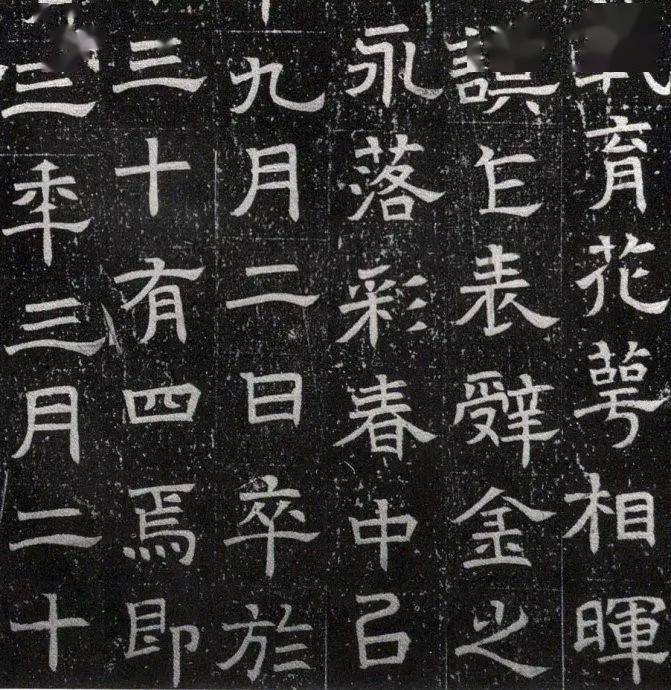 育花萼相暉
誤乍表辤金之
永落彩春中呂
九月二日卒於
三十有四焉即
三年三月二十